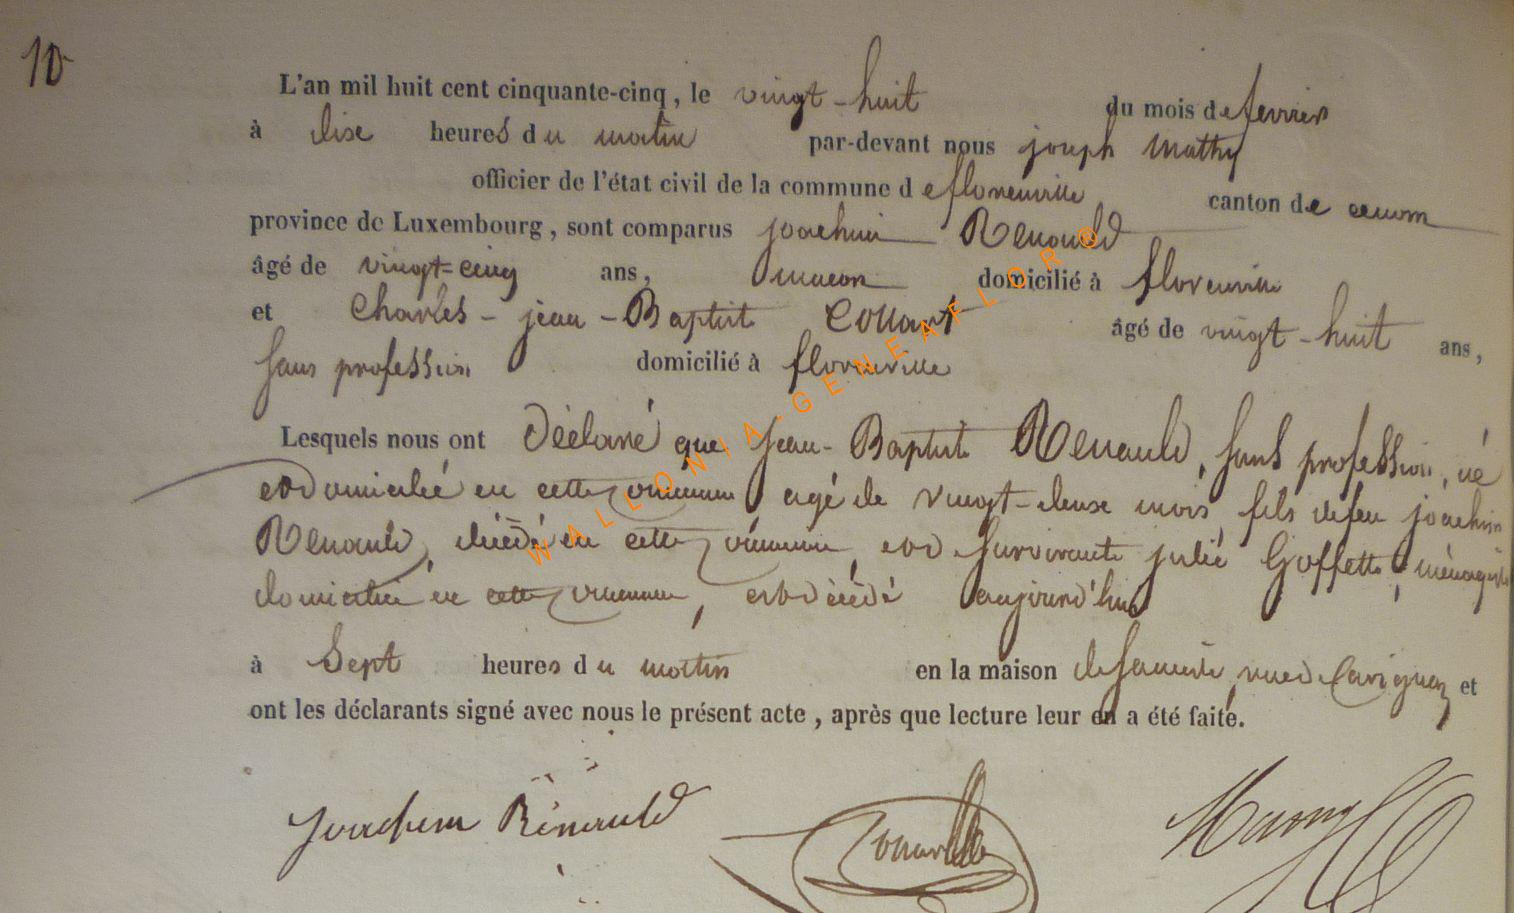 10
L'an mil huit cent cinquante-cinq, le vingt-huit du mois de fevrier
à dise heures du matin par-devant nous joseph Mathy
officier de l'état civil de la commune de florenville canton de
province de Luxembourg, sont comparus joachim Renauld
âgé de vingt-cinq ans, macon domicilié à florenville
et Charles-jean-Baptist Collart âgé de vingt-huit ans,
sans profession domicilié à florenville
Lesquels nous ont déclaré que jean-Baptist Renauld, sans profession, né
et domicilié en cette commune, agé de vingt-deuse mois, fils de feu joachim
Renauld, décédé en cette commune, et de survivante julie Goffette, ménagère
domiciliée en cette commune, est décédé aujourd'hui
à Sept heures du matin en la maison de sa mere, rue de et
ont les déclarants signé avec nous le présent acte, après que lecture leur en a été faite.
Joachim Rénauld
WALLONIA-GENEAFLOR®